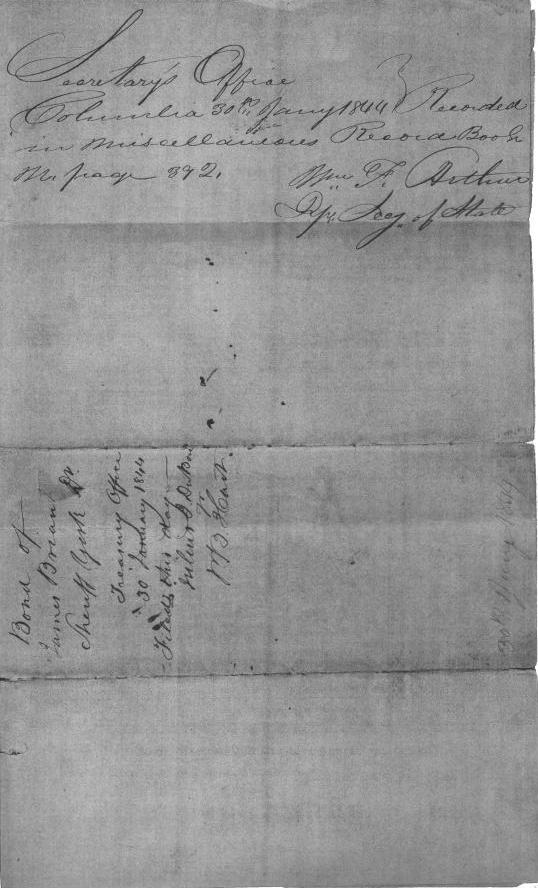 Secretary's Office
Columbia 30th Jany 1844 } Recorded
in Miscellaneous Record Book
M. page 392.
Wm F. Arthur
Dpy. Secy. of State
Bond of
James Brian
Sheriff York Dt.
Treasury Office
30 January 1844
Filed this day
pr
30th Jany 1844